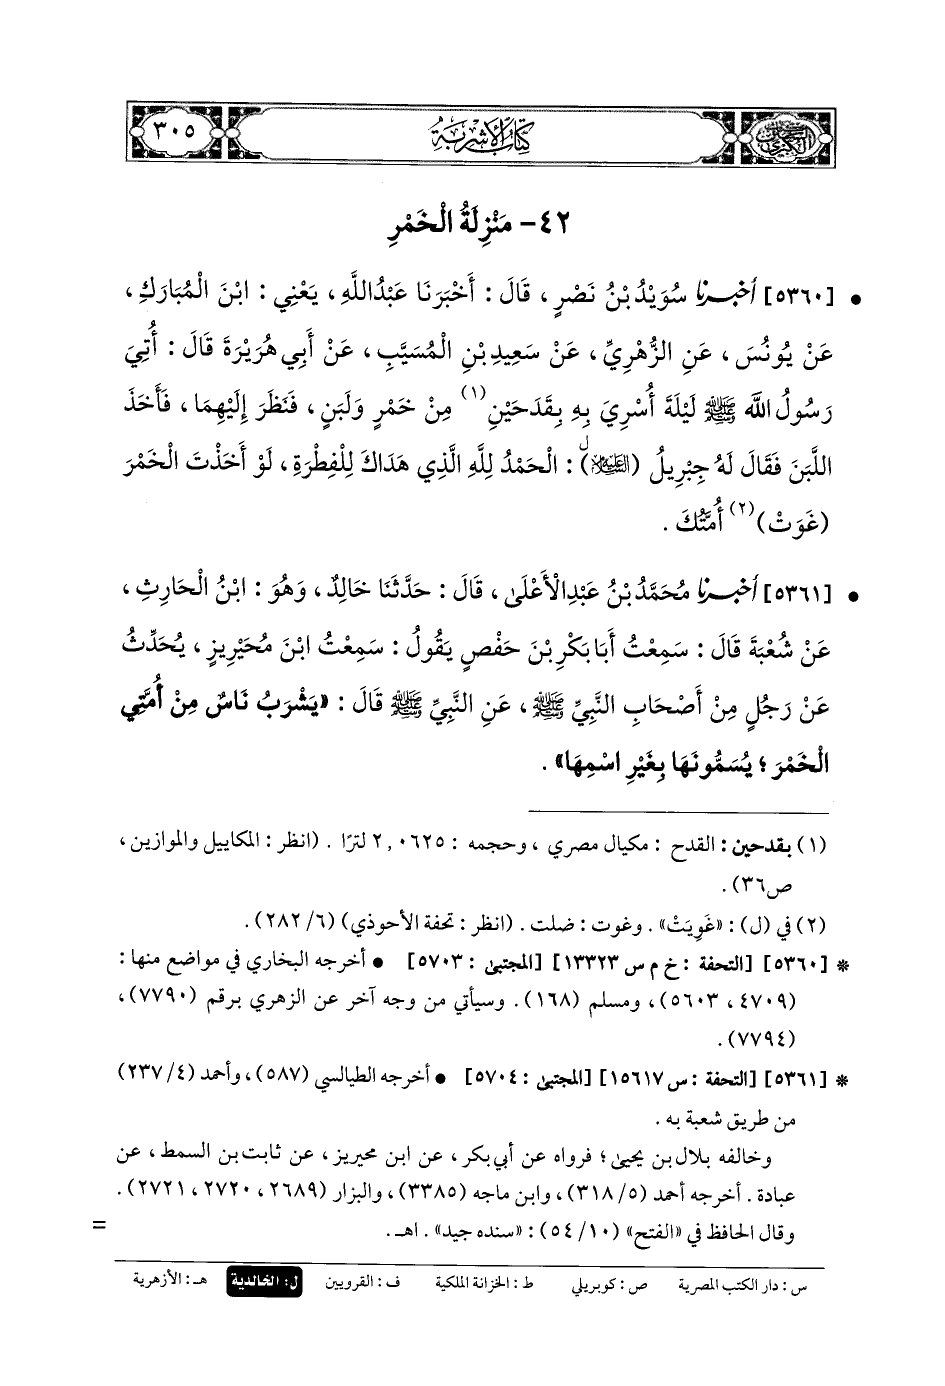 السنن الكبرى
كتاب الأشربة
٣٠٥
٤٢- مَنْزِلَةُ الْخَمْرِ
• [٥٣٦٠] أخبرنا سُوَيْدُ بْنُ نَصْرٍ، قَالَ : أَخْبَرَنَا عَبْدُاللَّهِ، يَعْنِي : ابْنَ الْمُبَارَكِ،
عَنْ يُونُسَ، عَنِ الزُّهْرِيِّ، عَنْ سَعِيدِ بْنِ الْمُسَيَّبِ، عَنْ أَبِي هُرَيْرَةَ قَالَ : أُتِيَ
رَسُولُ اللَّه ﷺ لَيْلَةَ أُسْرِيَ بِهِ بِقَدَحَيْنِ(١) مِنْ خَمْرٍ وَلَبَنٍ، فَنَظَرَ إِلَيْهِمَا، فَأَخَذَ
اللَّبَنَ فَقَالَ لَهُ جِبْرِيلُ (عليه السلام)ل : الْحَمْدُ لِلَّهِ الَّذِي هَدَاكَ لِلْفِطْرَةِ، لَوْ أَخَذْتَ الْخَمْرَ
(غَوَتْ)(٢) أُمَّتُكَ .
• [٥٣٦١] أخبرنا مُحَمَّدُ بْنُ عَبْدِالْأَعْلَى، قَالَ : حَدَّثَنَا خَالِدٌ، وَهُوَ : ابْنُ الْحَارِثِ،
عَنْ شُعْبَةَ قَالَ : سَمِعْتُ أَبَا بَكْرِ بْنَ حَفْصٍ يَقُولُ : سَمِعْتُ ابْنَ مُحَيْرِيزٍ، يُحَدِّثُ
عَنْ رَجُلٍ مِنْ أَصْحَابِ النَّبِيِّ ﷺ، عَنِ النَّبِيِّ ﷺ قَالَ : «يَشْرَبُ نَاسٌ مِنْ أُمَّتِي
الْخَمْرَ؛ يُسَمُّونَهَا بِغَيْرِ اسْمِهَا» .
(١) بقدحين : القدح : مكيال مصري، وحجمه : ٢,٠٦٢٥ لترًا . (انظر : المكاييل والموازين،
ص٣٦) .
(٢) في (ل) : «غَوِيَتْ» . وغوت : ضلت . (انظر : تحفة الأحوذي) (٦/ ٢٨٢) .
* [٥٣٦٠] [التحفة : خ م س ١٣٣٢٣] [المجتبى : ٥٧٠٣] • أخرجه البخاري في مواضع منها :
(٤٧٠٩، ٥٦٠٣)، ومسلم (١٦٨) . وسيأتي من وجه آخر عن الزهري برقم (٧٧٩٠)،
(٧٧٩٤) .
* [٥٣٦١] [التحفة : س ١٥٦١٧] [المجتبى : ٥٧٠٤] • أخرجه الطيالسي (٥٨٧)، وأحمد (٤/ ٢٣٧)
من طريق شعبة به .
وخالفه بلال بن يحيى؛ فرواه عن أبي بكر، عن ابن محيريز، عن ثابت بن السمط، عن
عبادة . أخرجه أحمد (٥/ ٣١٨)، وابن ماجه (٣٣٨٥)، والبزار (٢٦٨٩، ٢٧٢٠، ٢٧٢١) .
وقال الحافظ في «الفتح» (١٠/ ٥٤) : «سنده جيد» . اهـ . =
س : دار الكتب المصرية ص : كوبريلي ط : الخزانة الملكية ف : القرويين ل : الخالدية هـ : الأزهرية